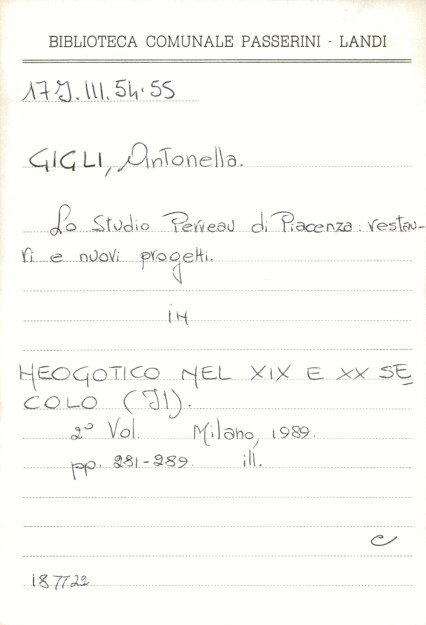 BIBLIOTECA COMUNALE PASSERINI - LANDI
17 J. III. 54-55
GIGLI, Antonella.
Lo Studio Perreau di Piacenza: restau-
ri e nuovi progetti.
in
NEOGOTICO NEL XIX E XX SE
COLO (Il).
2° Vol. Milano, 1989.
pp. 281-289. ill.
c
187722